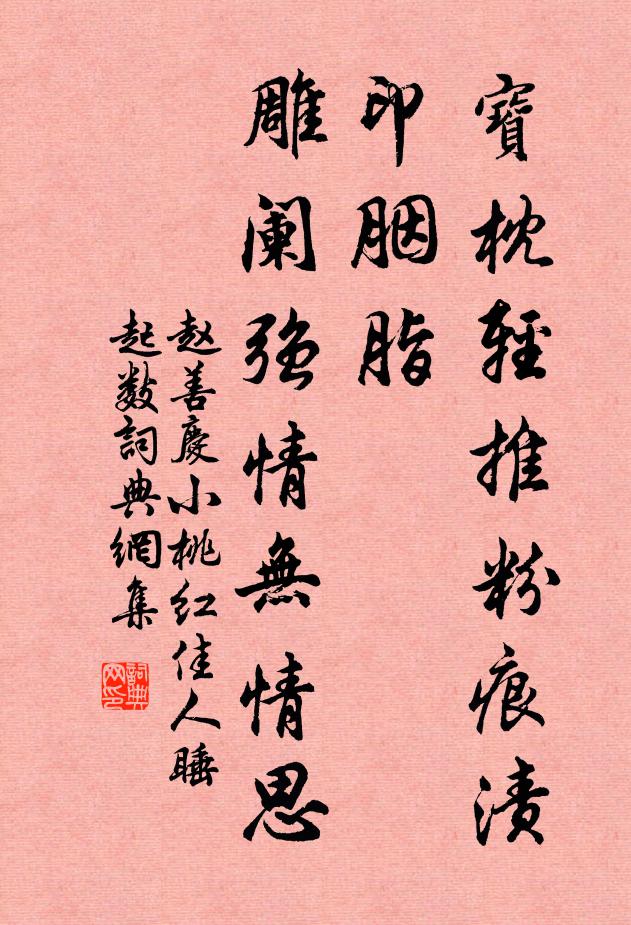 寶枕輕推粉痕漬
印胭脂
雕阑強情無情思
赵善慶小桃红佳人睡
起數詞典網集
詞典
网印